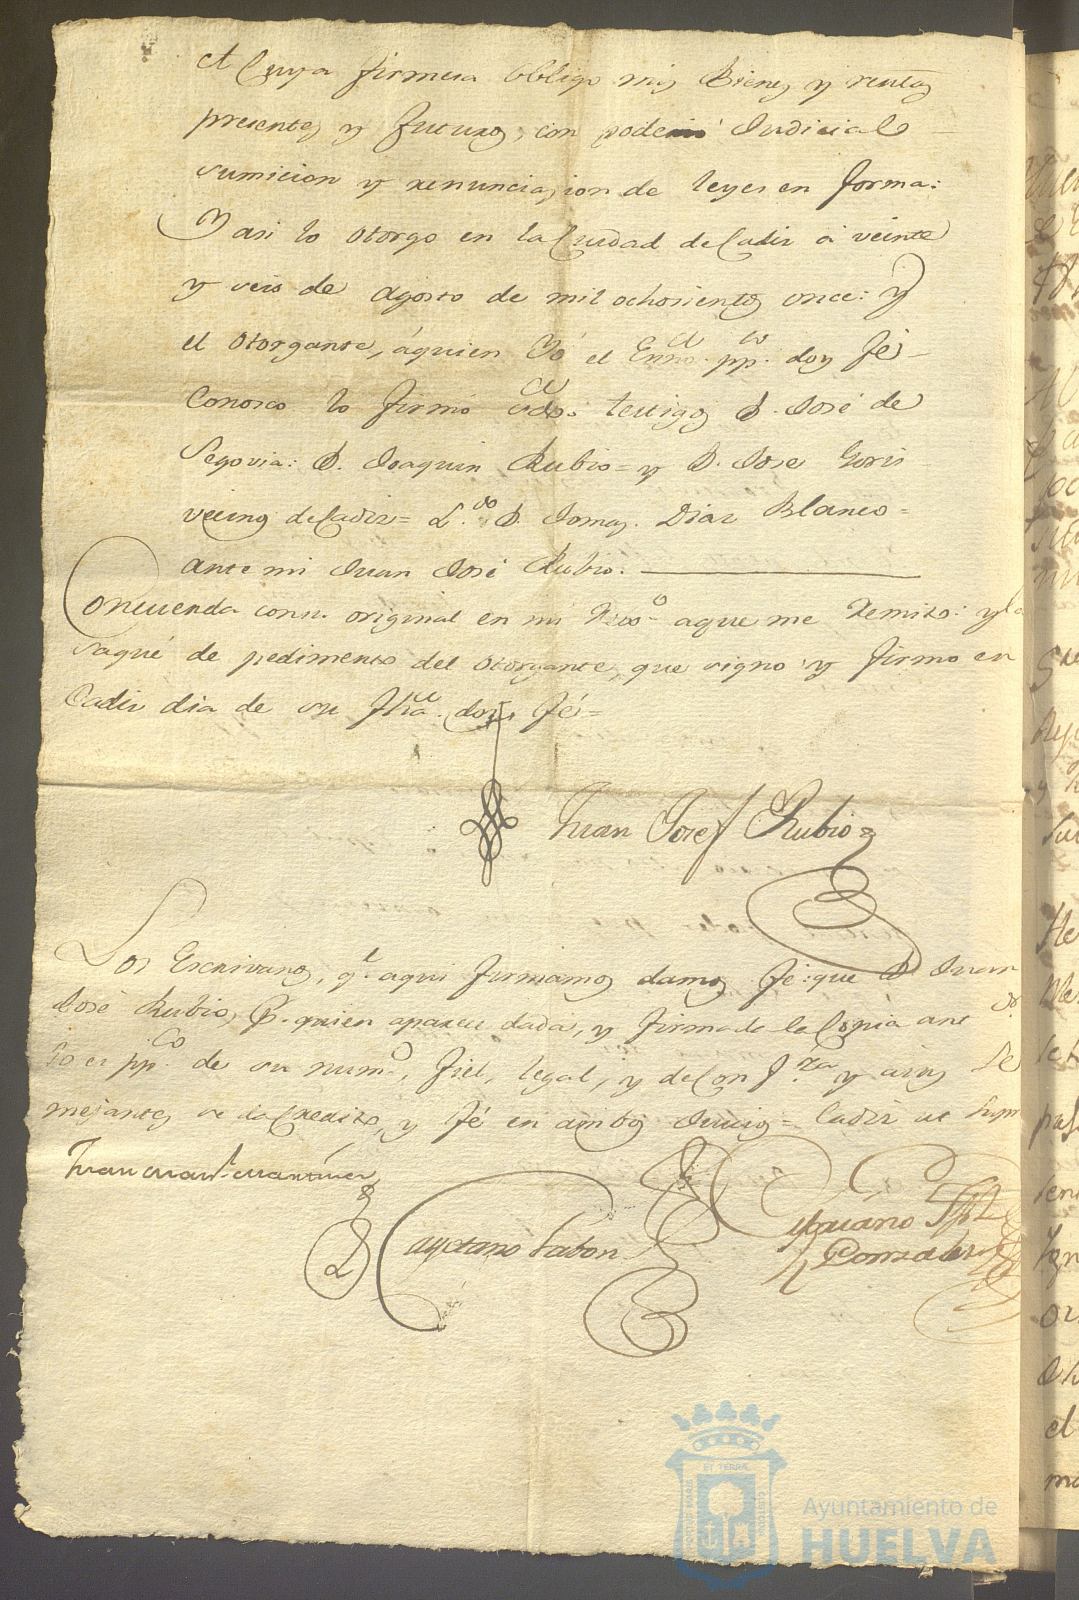 A Cuya firmesa obligo mis Bienes y rentas
presentes y futuros, con poderio Judicial
sumicion y renunciasion de leyes en forma:
Y asi lo otorgo en la Ciudad de Cadiz a veinte
y seis de Agosto de mil ochosientos once: y
el otorgante, áquien Yó el Essno. ppco. doy fé
Conosco lo firmó siendo testigos D. José de
Segovia: D. Joaquin Rubio = y D. Jose Goris
vecinos de Cadiz = L.do D. Tomas Diaz Blanco =
ante mi Juan José Rubio.
Concuerda con su original en mi Reg.o aque me remito: y la
saqué de pedimento del otorgante, que signo y firmo en
Cadiz dia de su fha. doy fé =
Juan Josef Rubio
Los Escrivanos, q.e aqui firmamos damos fé: que D. Juan
José Rubio, P. quien aparece dada, y firmada la Copia ant
es ppco. de su num.o, fiel, legal, y de Conf.za y a sus Se
mejantes se da Credito, y fé en ambos Juicios = Cadiz ut supra
Juan Man.l Martinez
Cayetano Pabon
Cipriano Jph
Gonzalez
ET TERRAE
Ayuntamiento de
HUELVA